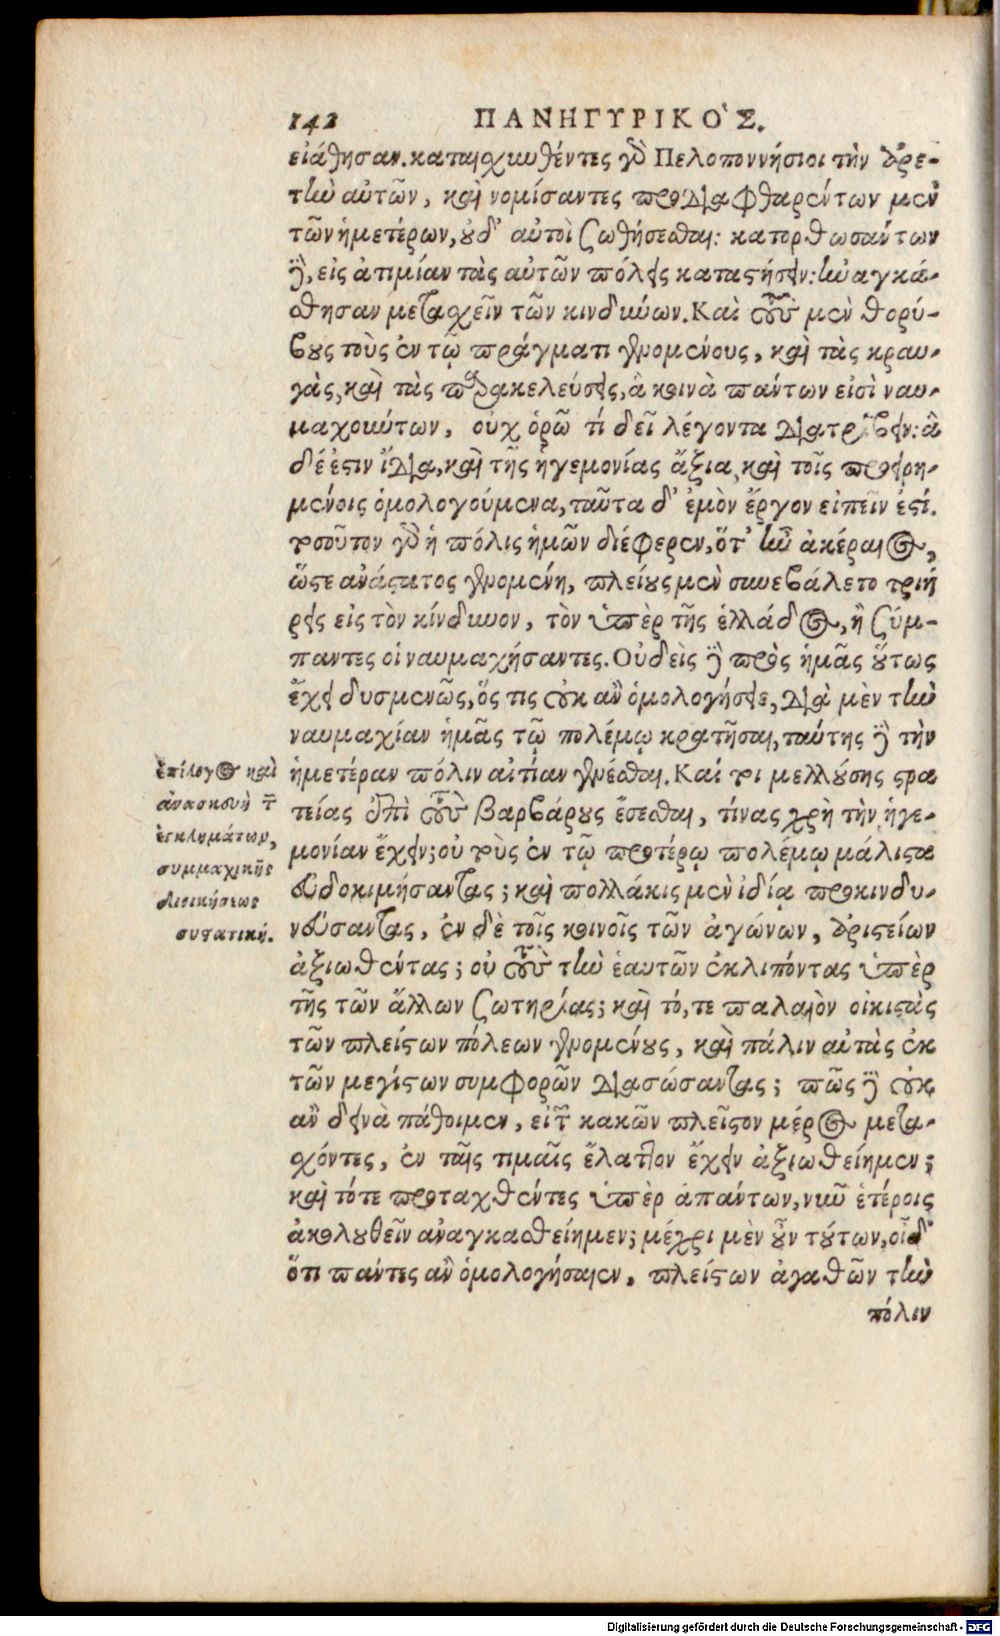 142 ΠΑΝΗΓΥΡΙΚΟ῾Σ.
εἰάθησαν. καταιχυνθέντες γδ Πελοποννήσιοι τὴν ἀρε-
τὴν αὐτῶν, καὶ νομίσαντες προδιαφθαρέντων μὲν
τῶν ἡμετέρων, ȣδ' αὐτοὶ σωθήσεσθαι: κατορθωσάντων
δὲ, εἰς ἀτιμίαν τὰς αὐτῶν πόλεις καταστήσειν: ἠναγκά-
σθησαν μετασχεῖν τῶν κινδύνων. Καὶ τοὺς μὲν θορύ-
βȣς τοὺς ἐν τῷ πράγματι γενομένους, καὶ τὰς κραυ-
γὰς, καὶ τὰς παρακελεύσεις, ἃ κοινὰ πάντων εἰσὶ ναυ-
μαχούντων, οὐχ ὁρῶ τί δεῖ λέγοντα διατρίβειν: ἃ
δέ ἐστιν ἴδια, καὶ τῆς ἡγεμονίας ἄξια, καὶ τοῖς προειρη-
μένοις ὁμολογούμενα, ταῦτα δ' ἐμὸν ἔργον εἰπεῖν ἐστί.
τοσοῦτον γδ ἡ πόλις ἡμῶν διέφερεν, ὅτ' ἦν ἀκέραιος,
ὥστε ἀνάστατος γενομένη, πλείȣς μὲν συνεβάλετο τριή
ρεις εἰς τὸν κίνδυνον, τὸν ὑπὲρ τῆς ἑλλάδος, ἢ σύμ-
παντες οἱ ναυμαχήσαντες. Οὐδεὶς δὲ πρὸς ἡμᾶς ȣ῞τως
ἔχει δυσμενῶς, ὅς τις οὐκ ἂν ὁμολογήσειε, διὰ μὲν τὴν
ναυμαχίαν ἡμᾶς τῷ πολέμῳ κρατῆσαι, ταύτης δὲ τὴν
ἡμετέραν πόλιν αἰτίαν γενέσθαι. Καί τοι μελλȣ́σης στρα
τείας ἐπὶ τοὺς βαρβάρȣς ἔσεσθαι, τίνας χρὴ τὴν ἡγε-
μονίαν ἔχειν; οὐ τοὺς ἐν τῷ προτέρῳ πολέμῳ μάλιστα
εὐδοκιμήσαντας; καὶ πολλάκις μὲν ἰδίᾳ προκινδυ-
νεύσαντας, ἐν δὲ τοῖς κοινοῖς τῶν ἀγώνων, ἀριστείων
ἀξιωθέντας; οὐ τοὺς τὴν ἑαυτῶν ἐκλιπόντας ὑπὲρ
τῆς τῶν ἄλλων σωτηρίας; καὶ τό, τε παλαιὸν οἰκιστὰς
τῶν πλείστων πόλεων γενομένȣς, καὶ πάλιν αὐτὰς ἐκ
τῶν μεγίστων συμφορῶν διασώσαντας; πῶς δὲ οὐκ
ἂν δεινὰ πάθοιμεν, εἰ τῶν κακῶν πλεῖστον μέρος μετα-
σχόντες, ἐν ταῖς τιμαῖς ἔλαττον ἔχειν ἀξιωθείημεν;
καὶ τότε προταχθέντες ὑπὲρ ἁπάντων, νῦν ἑτέροις
ἀκολȣθεῖν ἀναγκασθείημεν; μέχρι μὲν ȣ῏ν τȣ́των, οἶδ'
ὅτι πάντες ἂν ὁμολογήσαιεν, πλείστων ἀγαθῶν τὴν
πόλιν
ἐπίλογος καὶ
ἀνασκευὴ τῶν
ἐγκλημάτων,
συμμαχικῆς
διοικήσεως
συστατική.
Digitalisierung gefördert durch die Deutsche Forschungsgemeinschaft - DFG